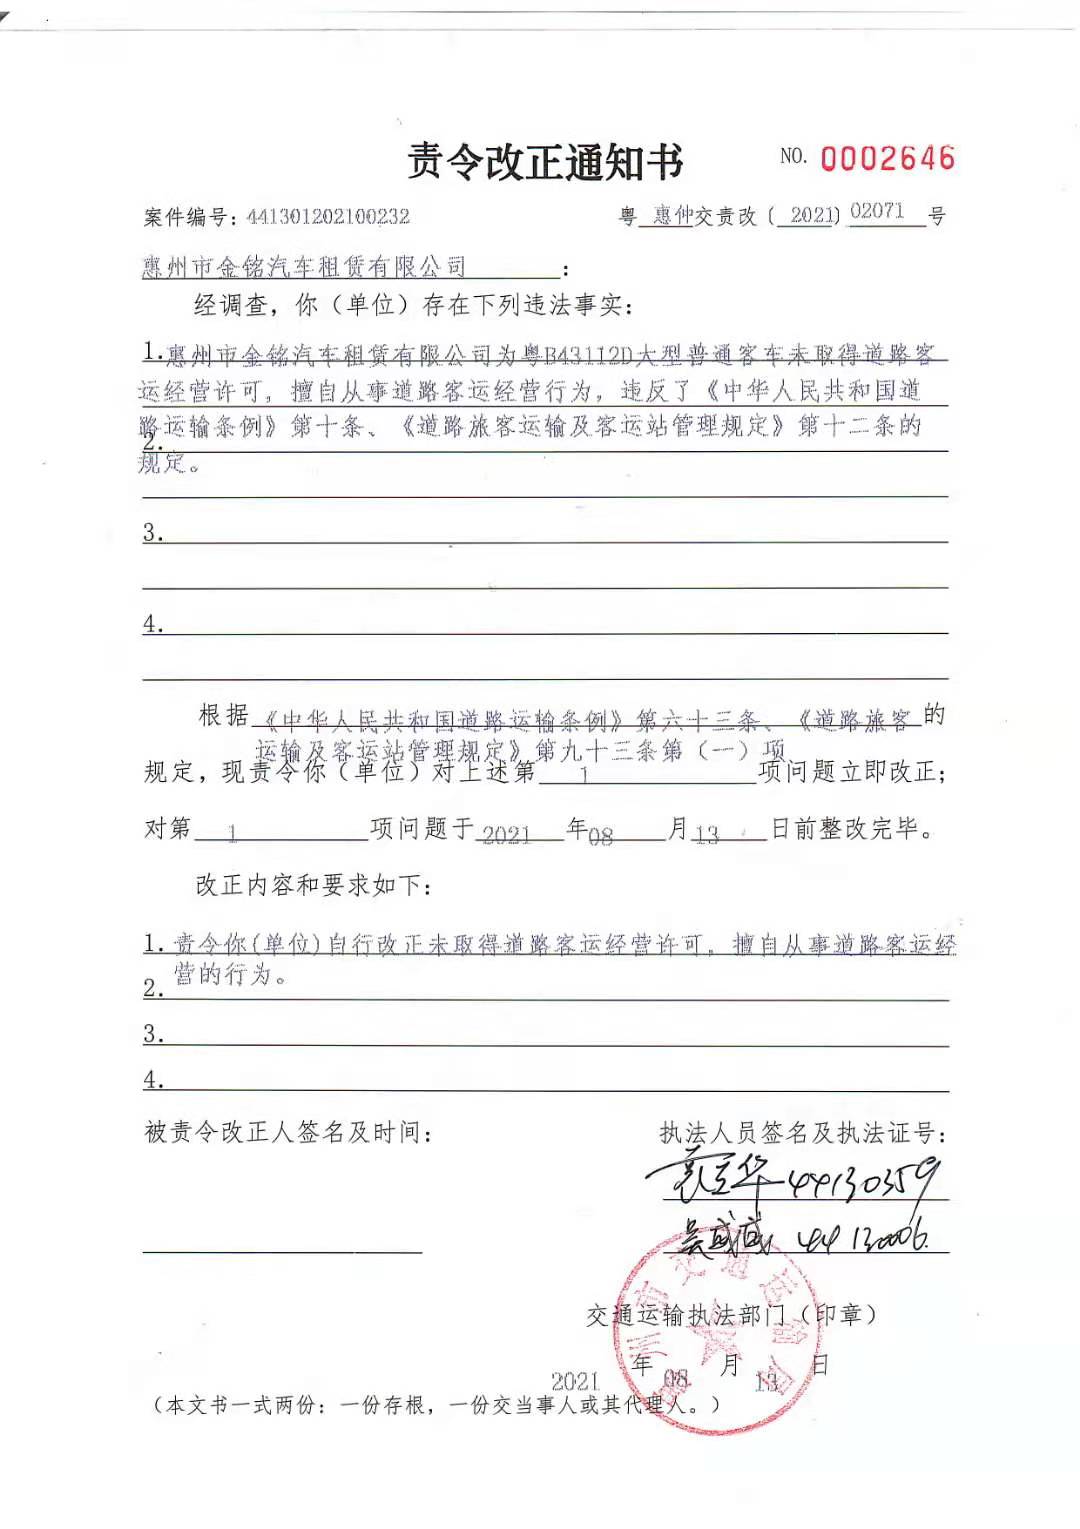 责令改正通知书 NO. 0002646
案件编号：441301202100232 粤 惠仲交责改〔 2021〕 02071 号
惠州市金铭汽车租赁有限公司 ：
经调查，你（单位）存在下列违法事实：
1.惠州市金铭汽车租赁有限公司为粤B43112D大型普通客车未取得道路客
运经营许可，擅自从事道路客运经营行为，违反了《中华人民共和国道
路运输条例》第十条、《道路旅客运输及客运站管理规定》第十二条的
2.
规定。
3.
4.
根据《中华人民共和国道路运输条例》第六十三条、《道路旅客 的
运输及客运站管理规定》第九十三条第（一）项
规定，现责令你（单位）对上述第 1 项问题立即改正；
对第 1 项问题于 2021 年 08 月 13 日前整改完毕。
改正内容和要求如下：
1. 责令你(单位)自行改正未取得道路客运经营许可，擅自从事道路客运经
营的行为。
2.
3.
4.
被责令改正人签名及时间： 执法人员签名及执法证号：
44130359
44130006
惠州市交通运输局
交通运输执法部门（印章）
2021 年 08 月 13 日
（本文书一式两份：一份存根，一份交当事人或其代理人。）